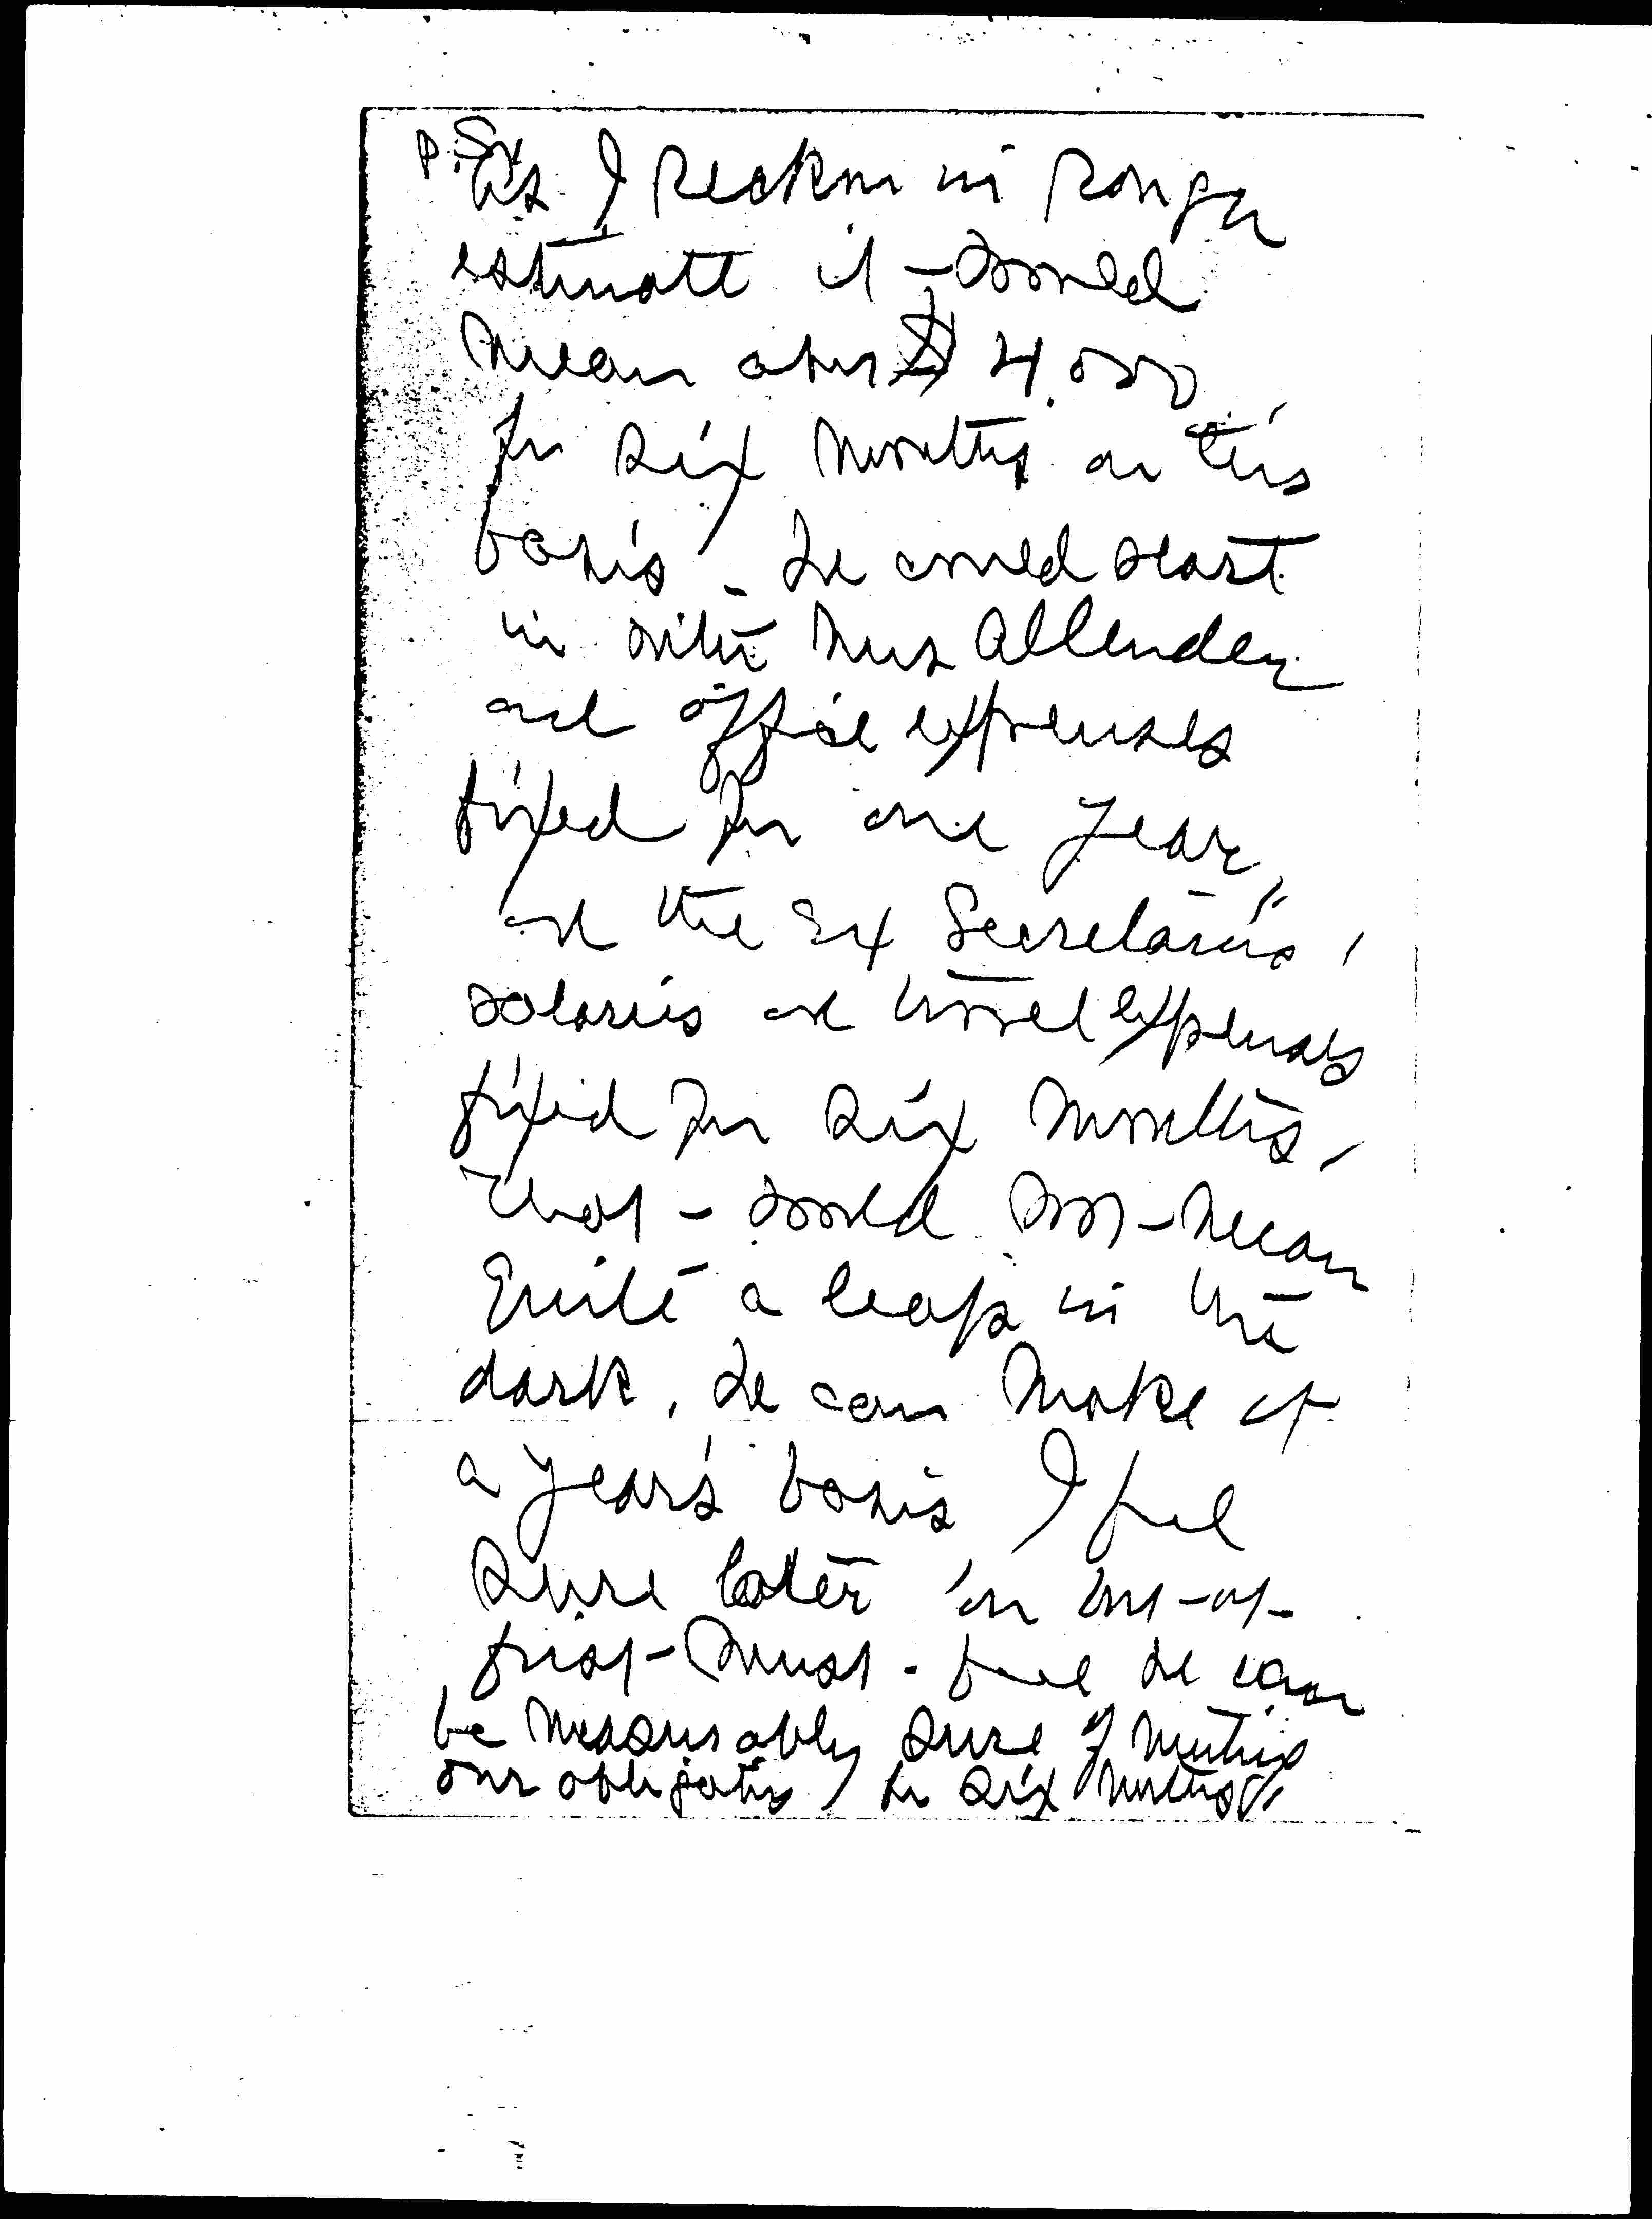 P.S.
As I reckon in rough
estimate it would
mean about $4,000
for six months on this
basis. We could start
in with Miss Allender
and office expenses
fixed for one year,
and the Ex Secretaries'
salaries and travel expenses
fixed for six months,
that would not mean
quite a leap in the
dark. We can make it
a year's basis I feel
sure later on but at
first must feel we can
be measurably sure of meeting
our obligations for six months.